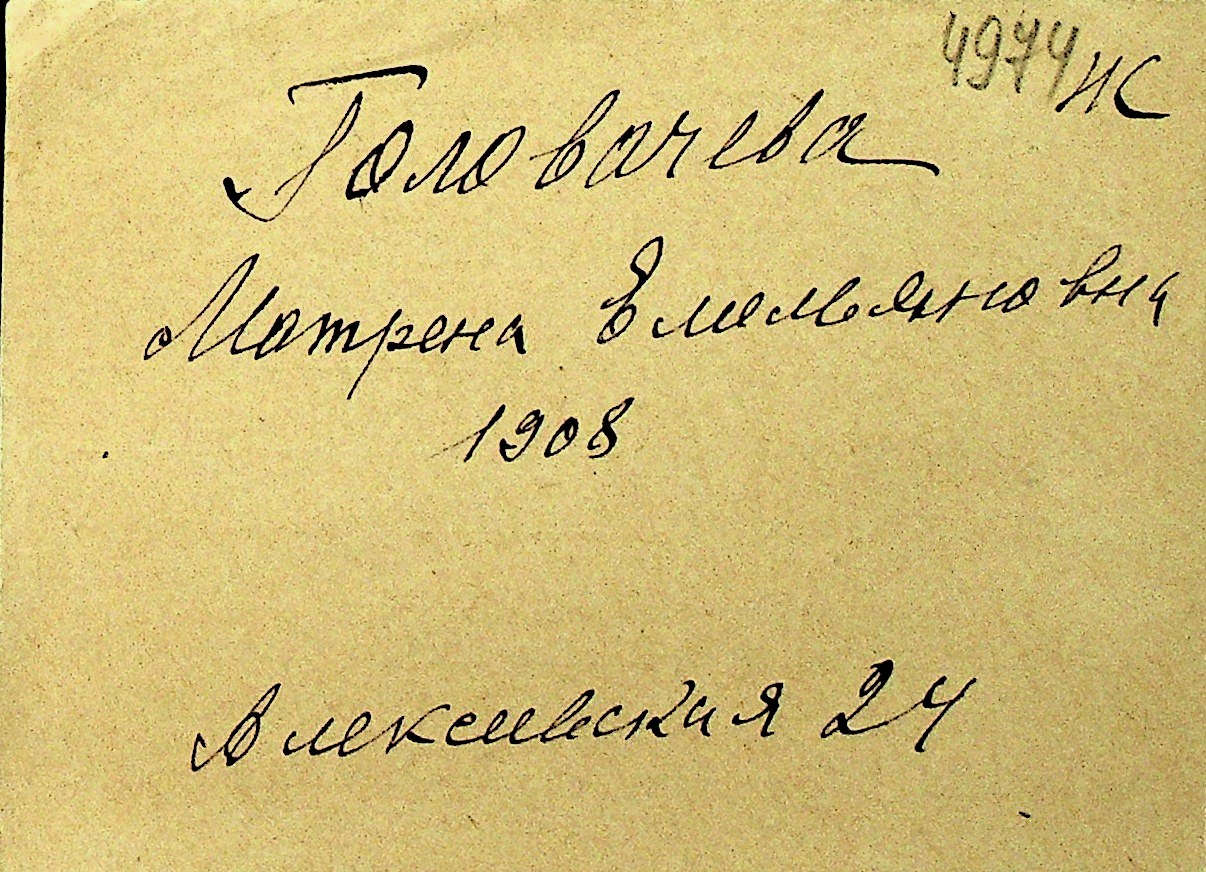 4974 Ж
Головачева
Матрена Емельяновна
1908
Алексеевская 24